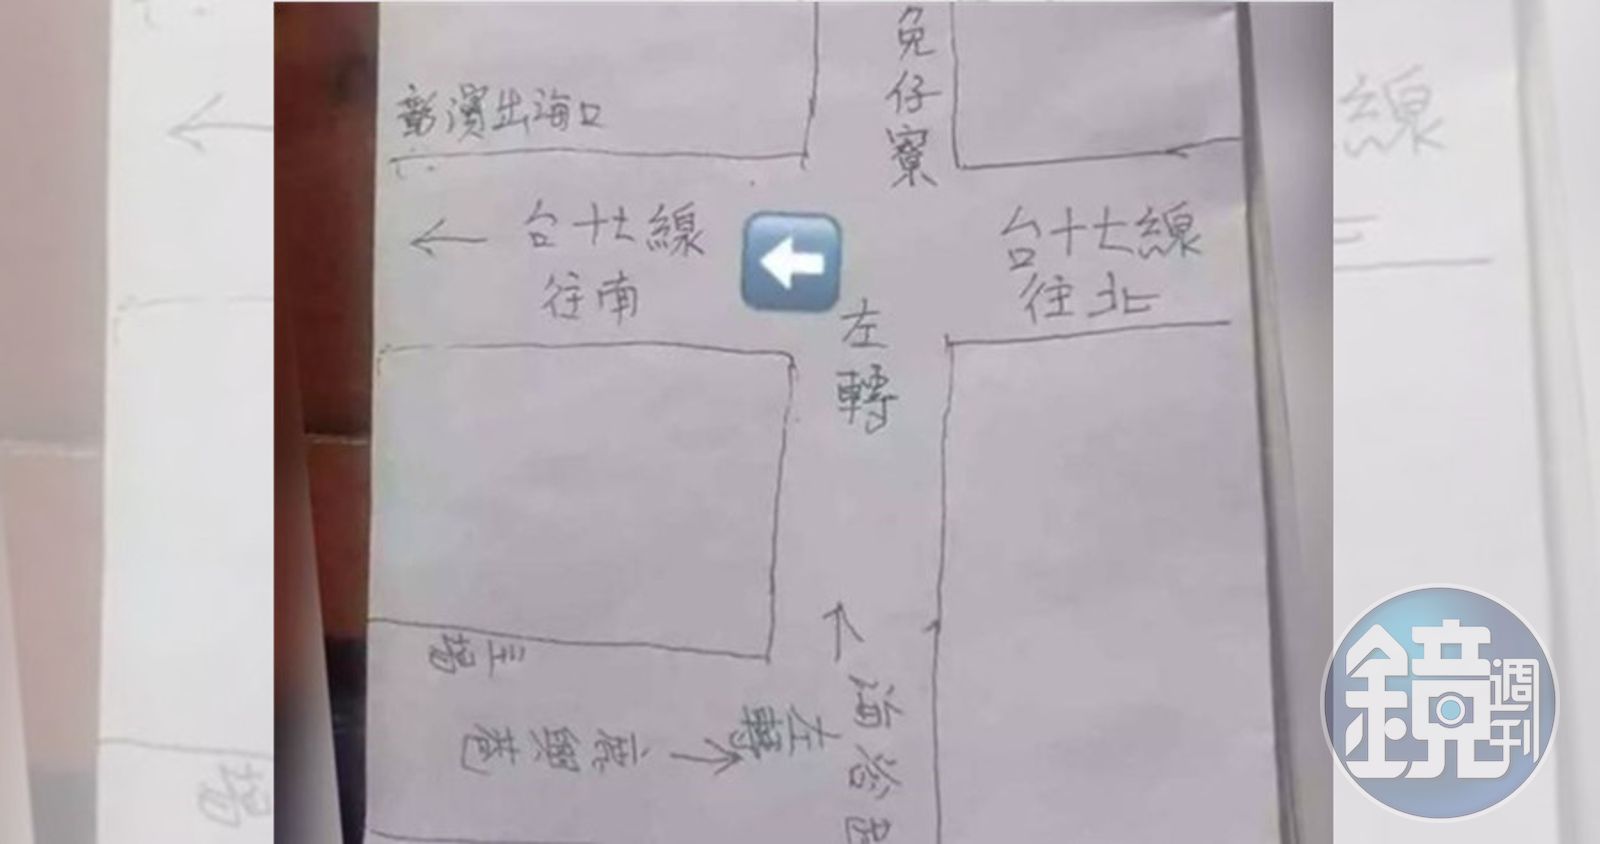 兔仔寮
彰濱出海口
← 台十七線
往南
台十七線
往北
左轉
主場
鹿鎮巷 →
左轉
海浴路
鏡週刊